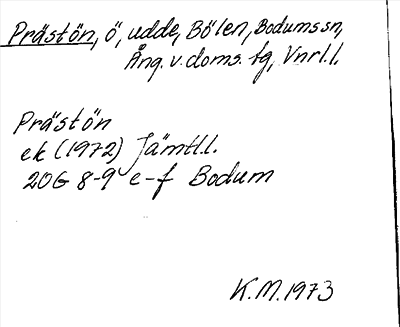 Prästön, ö, udde, Bölen, Bodums sn,
Ång. v. doms. fg, Vnrl. l.
Prästön
ek (1972) Jämtl.l.
20G 8-9 e-f Bodum
K.M. 1973